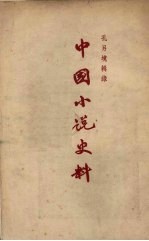 孔另境輯錄
中國小說史料